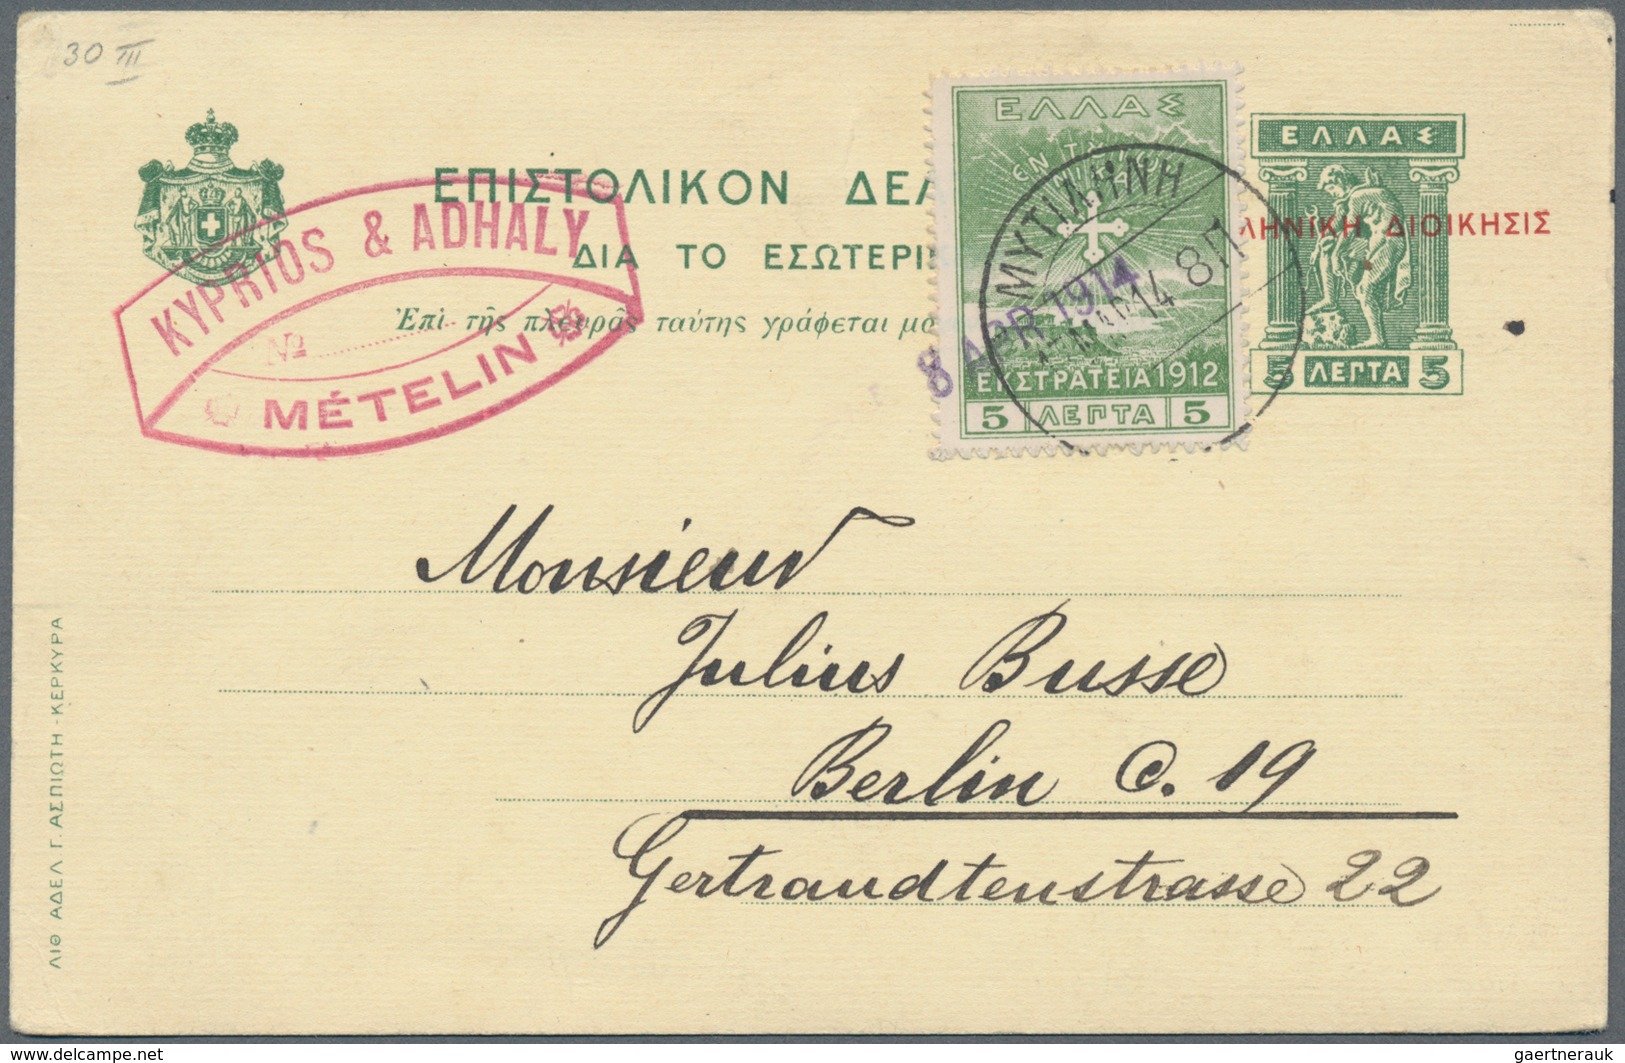 30 III
ΕΠΙΣΤΟΛΙΚΟΝ ΔΕΛ
ΔΙΑ ΤΟ ΕΣΩΤΕΡΙΚ
Ἐπὶ τῆς πλευρᾶς ταύτης γράφεται μο
KYPRIOS & ADHALY
No
MÉTELIN
ΕΛΛΑΣ
ΕΝ ΤΟΥΤΩ
ΝΙΚΑ
ΕΚΣΤΡΑΤΕΙΑ 1912
5 ΛΕΠΤΑ 5
ΜΥΤΙΛΗΝΗ
ΜΑΡ 14 8Π
8 APR 1914
ΕΛΛΑΣ
ΛΗΝΙΚΗ ΔΙΟΙΚΗΣΙΣ
5 ΛΕΠΤΑ 5
Monsieur
Julius Busse
Berlin C. 19
Gertraudtenstrasse 22
ΛΙΘ ΑΔΕΛ Γ. ΑΣΠΙΩΤΗ - ΚΕΡΚΥΡΑ
www.delcampe.net
gaertnerauk